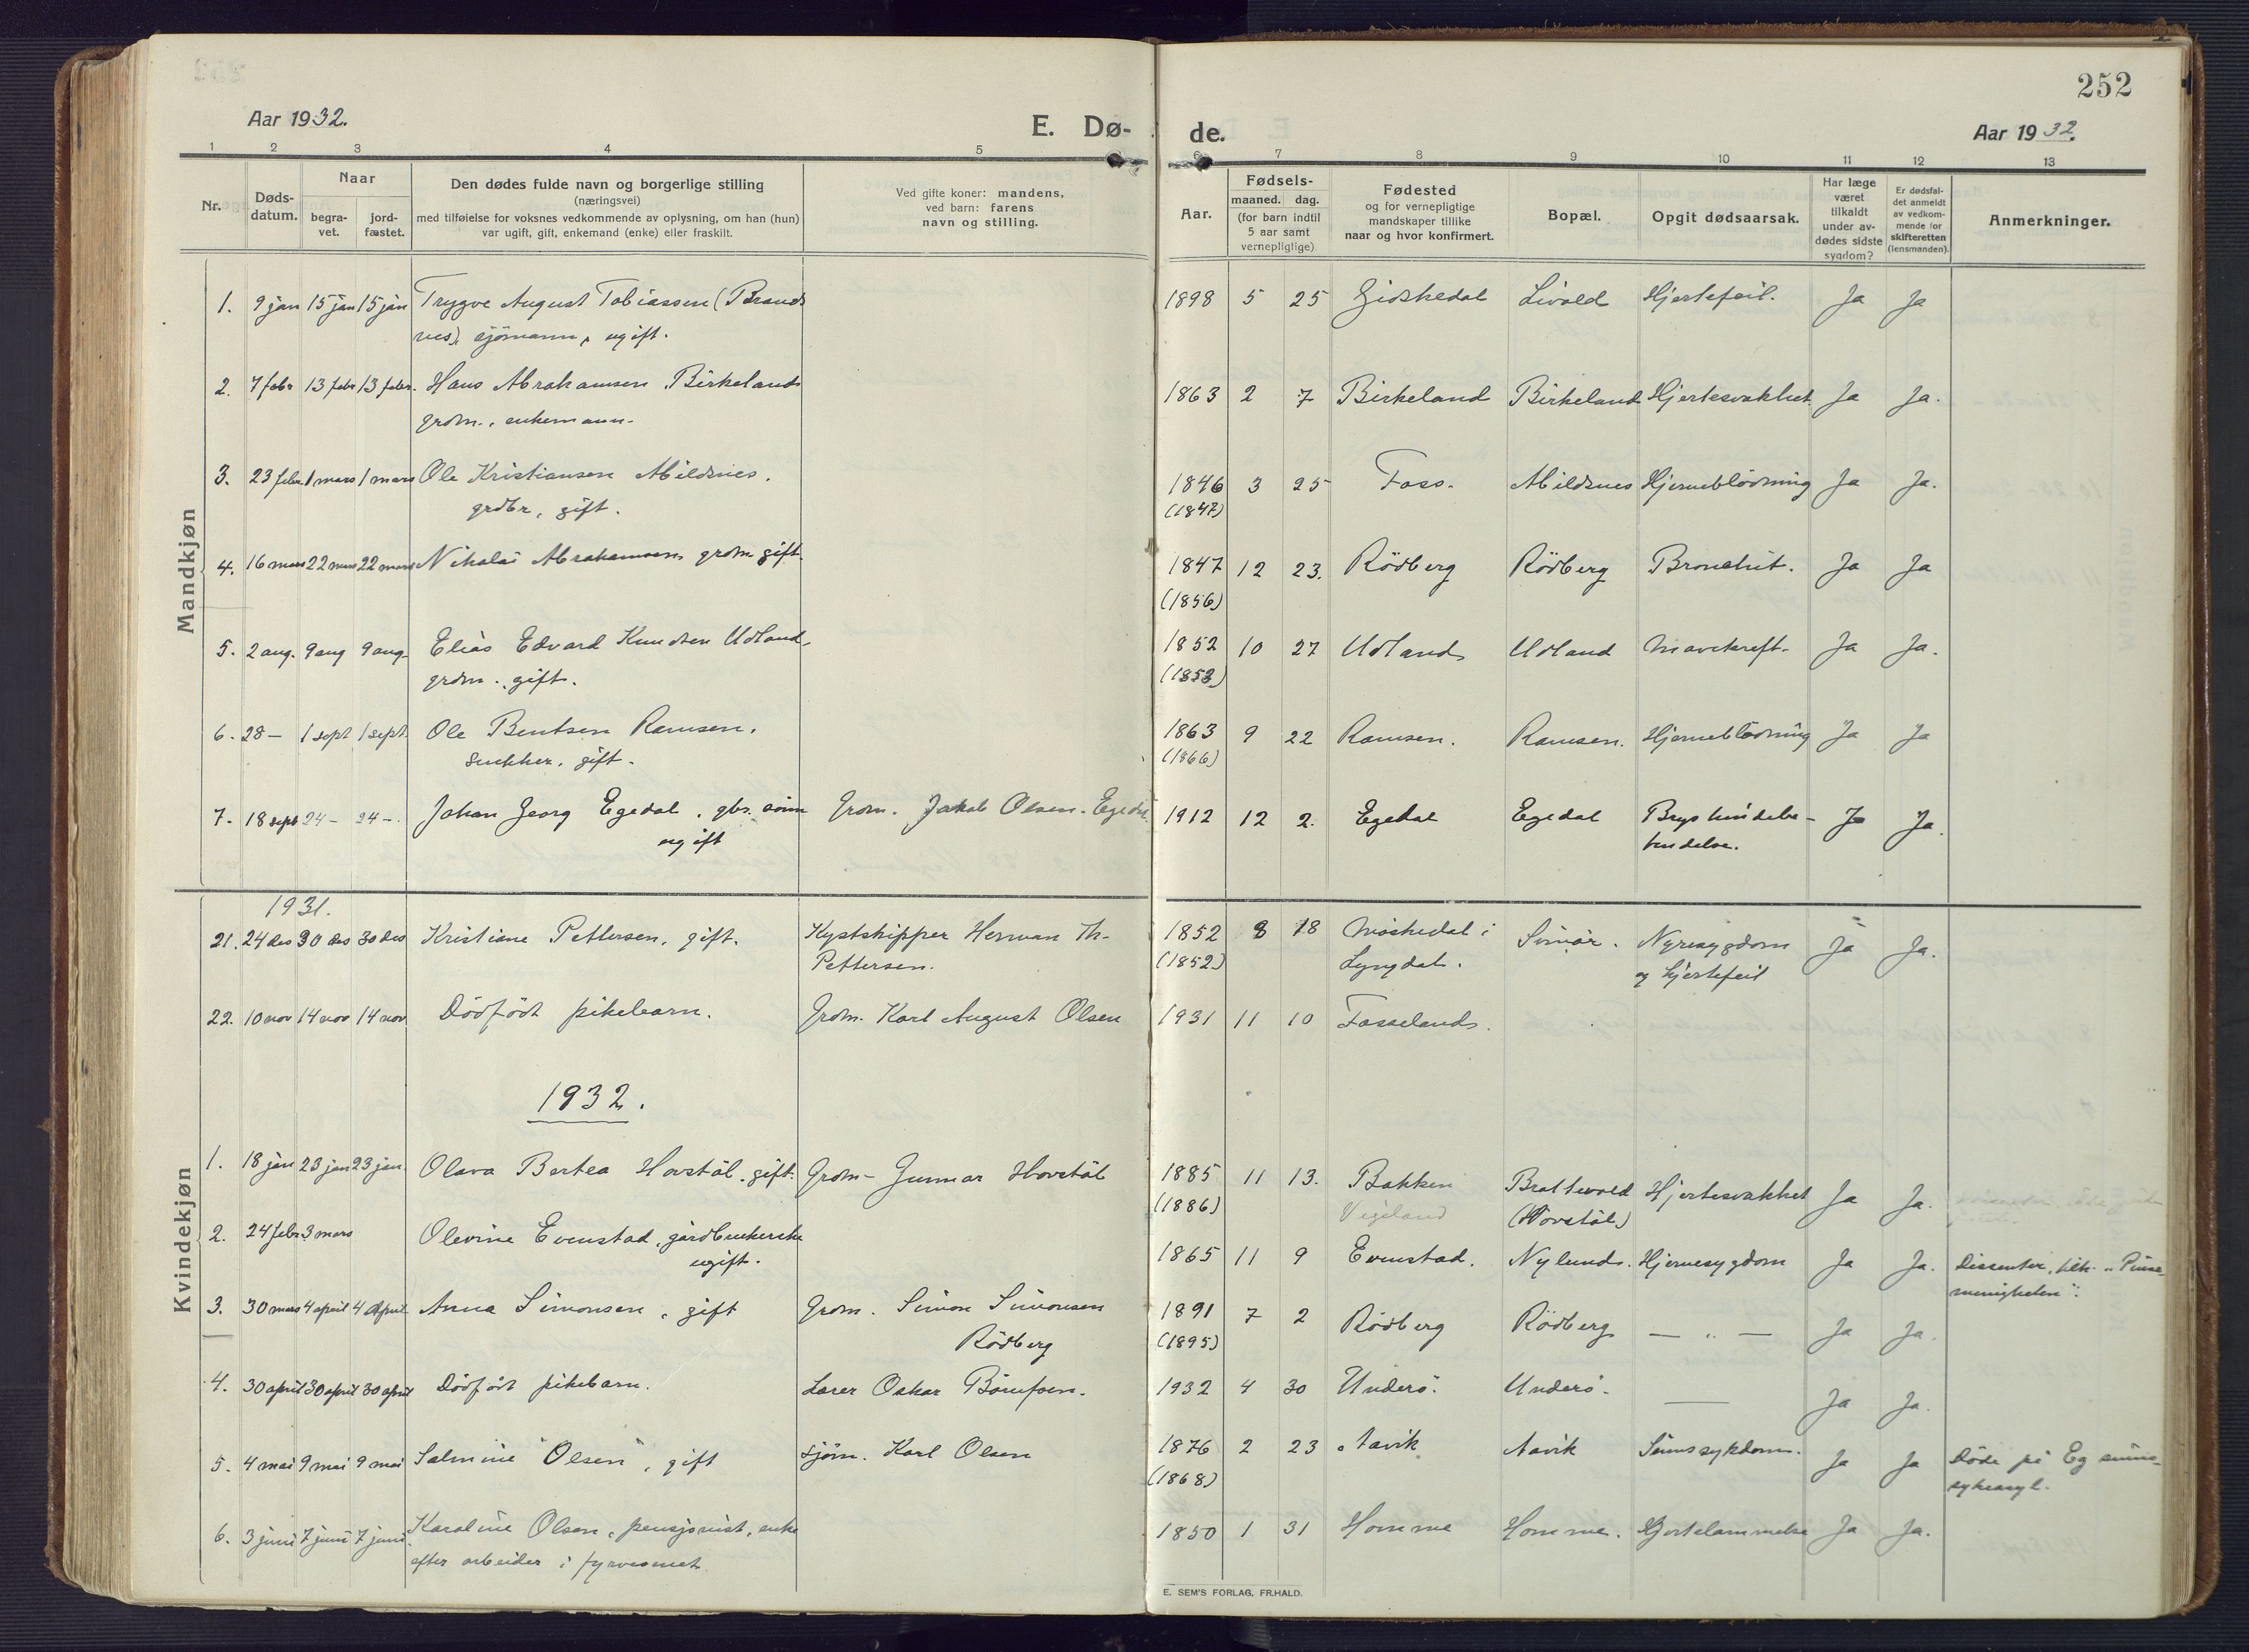 252
Aar 1932.
E. Dø-
de.
Aar 1932.
1 2 3 4 5 6 7 8 9 10 11 12 13
Nr.
Døds-
datum.
Naar
begra-
vet.
jord-
fæstet.
Den dødes fulde navn og borgerlige stilling
(næringsvei)
med tilføielse for voksnes vedkommende av oplysning, om han (hun)
var ugift, gift, enkemand (enke) eller fraskilt.
Ved gifte koner: mandens,
ved barn: farens
navn og stilling.
Aar.
Fødsels-
maaned. dag.
(for barn indtil
5 aar samt
vernepligtige)
Fødested
og for vernepligtige
mandskaper tillike
naar og hvor konfirmert.
Bopæl.
Opgit dødsaarsak.
Har læge
været
tilkaldt
under av-
dødes sidste
sygdom?
Er dødsfal-
det anmeldt
av vedkom-
mende for
skifteretten
(lensmanden).
Anmerkninger.
Mandkjøn
1. 9 jan 15 jan 15 jan Trygve August Tobiassen (Brands 1898 5 25 Gidskedal Livold Hjertefeil. Ja Ja
nes), sjömann, ugift.
2. 7 febr 13 febr 13 febr. Hans Abrahamsen Birkeland 1863 2 7 Birkeland Birkeland Hjertesvakhet Ja Ja.
grdm., enkemann.
3. 23 febr. 1 mars 1 mars Ole Kristiansen Abildsnes. 1846 3 25 Foss. Abildsnes Hjerneblödning Ja Ja.
grdbr, gift. (1847)
4. 16 mars 22 mars 22 mars Nikolai Abrahamsen grdm gift. 1847 12 23. Rödberg Rödberg Bronchit. Ja Ja
(1856)
5. 2 aug. 9 aug 9 aug. Elias Edvard Knudsen Udland, 1852 10 27 Udland Udland Mavekreft. Ja Ja.
grdm., gift. (1853)
6. 28 — 1 sept 1 sept. Ole Bentsen Ramsen. 1863 9 22 Ramsen. Ramsen. Hjerneblödning Ja Ja
Snekker, gift. (1866)
7. 18 sept 24 — 24 —. Johan Georg Egedal, gbr. sönn Grdm. Jakob Olsen Egedal 1912 12 2. Egedal Egedal Brysthindebe- Ja Ja.
ugift
Kvindekjøn
1931.
21. 24 des 30 des 30 des Kristiane Pettersen, gift. Kystskipper Herman Th. 1852 8 18 Möskedal i Svinör. Nyresygdom Ja Ja.
Pettersen. (1852) Lyngdal. og hjertefeil
22. 10 nov 14 nov 14 nov Dödfödt pikebarn. Grdm. Karl August Olsen 1931 11 10 Fosseland.
1932.
1. 18 jan 23 jan 23 jan. Olava Bertea Hovstöl, gift. Grdm. Gunnar Hovstöl 1885 11 13. Bakken Brattvold Hjertesvakhet Ja Ja.
(1886) Vigeland (Hovstöl)
2. 24 febr 3 mars Olevine Evenstad, gårdbrukerske 1865 11 9 Evenstad. Nylund. Hjernesygdom Ja Ja. Dissenter, tilh. "Pinse-
ugift. menigheten".
3. 30 mars 4 april 4 April Anna Simonsen, gift Grdm. Simon Simonsen 1891 7 2 Rödberg Rödberg — " — Ja Ja.
Rödberg (1895)
4. 30 april 30 april 30 april Dödfödt pikebarn. Lærer Oskar 1932 4 30 Underö. Underö. — Ja Ja.
5. 4 mai 9 mai 9 mai Salmine Olsen, gift sjöm. Karl Olsen 1876 2 23 Aavik Aavik Sinnssykdom. Ja Ja Döde på Eg sinns-
(1868) sykeasyl.
6. 3 juni 7 juni 7 juni. Karoline Olsen, pensjonist, enke 1850 1 31 Homme Homme. Hjertelammelse Ja Ja.
efter arbeider i fyrvesenet.
E. SEM'S FORLAG, FR.HALD.